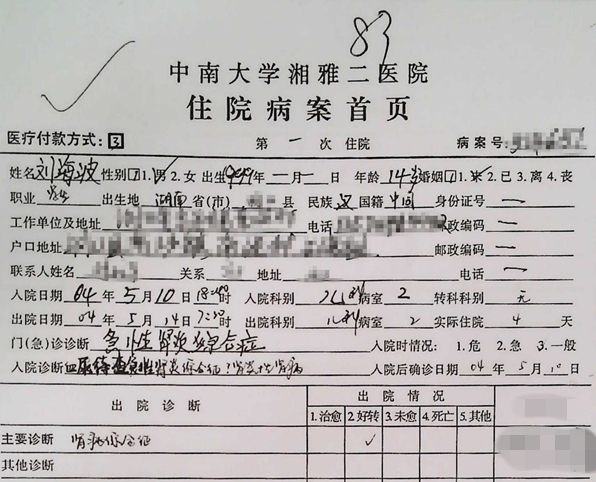 83
中南大学湘雅二医院
住院病案首页
医疗付款方式：3 第一次住院 病案号：
姓名 刘海波 性别 1 1.男 2.女 出生 年一月一日 年龄 14岁 婚姻 1 1.未 2.已 3.离 4.丧
职业 学生 出生地 湖南 省(市) 县 民族 汉 国籍 中国 身份证号 一
工作单位及地址 电话 邮政编码 一
户口地址 邮政编码 一
联系人姓名 关系 地址 电话 一
入院日期 04 年 5 月 10 日 时 入院科别 儿科 病室 2 转科科别 无
出院日期 04 年 5 月 14 日 时 出院科别 儿科 病室 2 实际住院 4 天
门(急)诊诊断 急性肾炎综合症 入院时情况：1.危 2.急 3.一般
入院诊断 血尿待查：急性肾炎综合征？ 入院后确诊日期 04 年 5 月 10 日
出院诊断 出院情况
1.治愈 2.好转 3.未愈 4.死亡 5.其他
主要诊断 肾病综合征 ✓
其他诊断